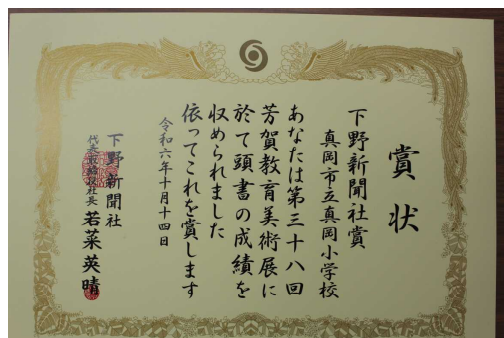 賞状
下野新聞社賞
真岡市立真岡小学校
あなたは第三十八回
芳賀教育美術展に
於て頭書の成績を
収められました
依ってこれを賞します
令和六年十月十四日
下野新聞社
代表取締役社長 若菜英晴